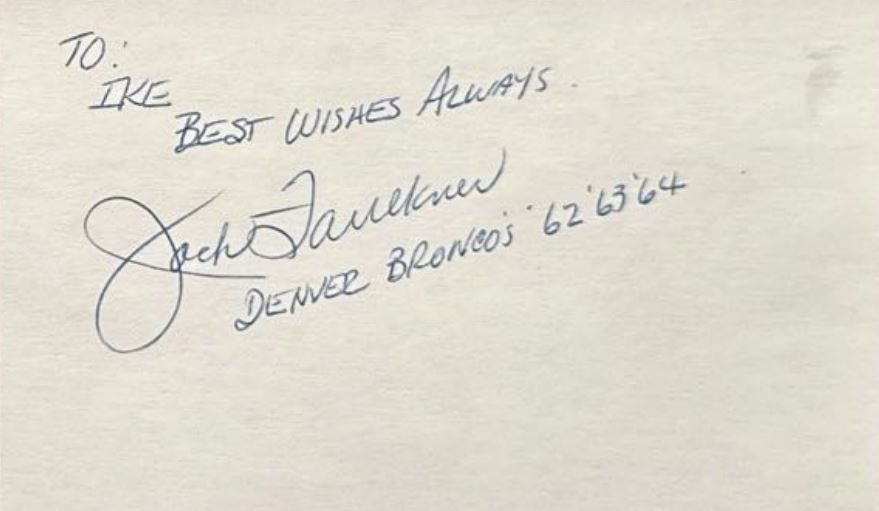 TO:
IKE
BEST WISHES ALWAYS.
Jack Faulkner
DENVER BRONCO'S '62 '63 '64